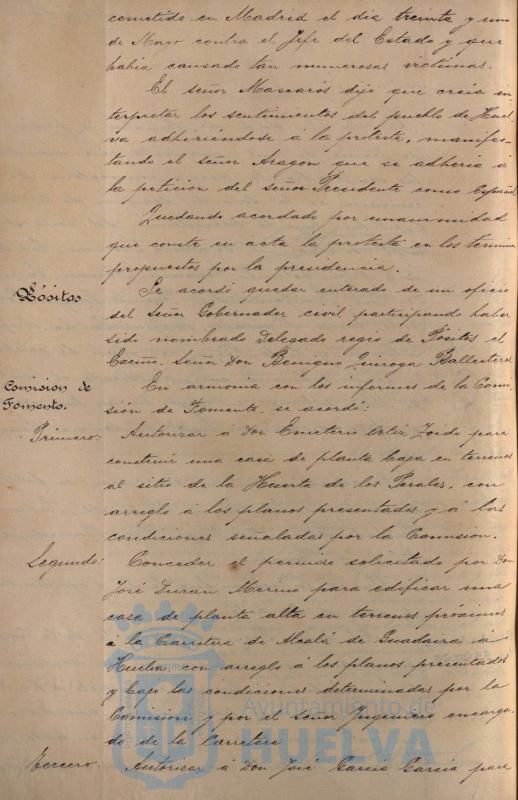 cometido en Madrid el dia treinta y uno
de Mayo contra el Jefe del Estado y que
habia causado tan numerosas victimas.
El señor Mascarós dijo que creia in
terpretar los sentimientos del pueblo de Huel
va adhiriéndose á la protesta, manifes-
tando el señor Aragon que se adheria á
la peticion del señor Presidente como Español
Quedando acordado por unanimidad
que conste en acta la protesta en los términos
propuestos por la presidencia.
Pósitos
Se acordó quedar enterado de un oficio
del Señor Gobernador civil participando haber
sido nombrado Delegado regio de Pósitos el
Excmo. Señor Don Benigno Quiroga Ballesteros.
Comision de
Fomento.
En armonia con los informes de la Comi
sión de Fomento, se acordó:
Primero: Autorizar á Don Emeterio Ortiz para
construir una casa de planta baja en terrenos
al sitio de la Huerta de los Perales, con
arreglo á los planos presentados y á las
condiciones señaladas por la Comision.
Segundo: Conceder el permiso solicitado por Don
José Duran Merino para edificar una
casa de planta alta en terrenos próximos
á la Carretera de Alcalá de Guadaira á
Huelva, con arreglo á los planos presentados
y bajo las condiciones determinadas por la
Comision y por el Señor Ingeniero encarga
do de la Carretera
Tercero: Autorizar á Don José Garcia Garcia para
Ayuntamiento de
HUELVA